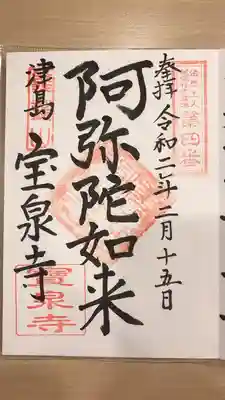 奉拝 令和二年二月十五日
阿弥陀如来
津島
宝泉寺
第四番
寶泉寺